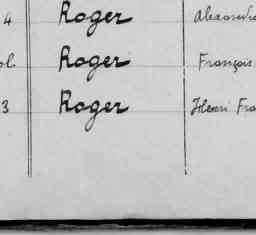 4 Roger Alexandre
ol. Roger François
3 Roger Henri Fra